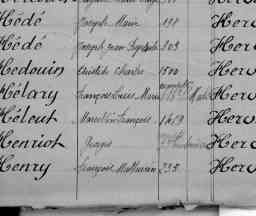 Hédé Joseph Marie 198 Herv
Hédé Joseph Jean Baptiste 803 Herv
Hedouin Aristide Charles 1500 Herv
Hélary François Louis Marie Herv
Héleut Marcellin François 1619 Herv
Henriot Herv
Henry François Mathurin 235 Herv